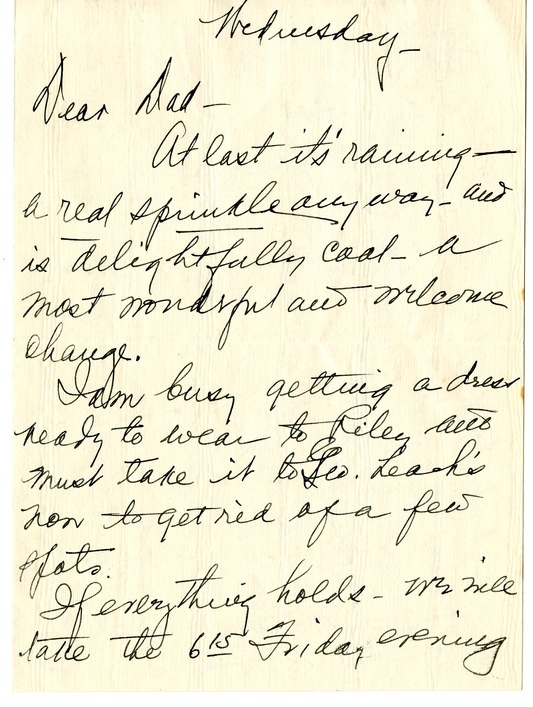 Wednesday-
Dear Dad-
At last it's raining-
a real sprinkle any way- and
is delightfully cool- a
most wonderful and welcome
change.
I am busy getting a dress
ready to wear to Riley and
must take it to Geo. Leach's
now to get rid of a few
spots.
If everything holds- we will
take the 6 15 Friday evening